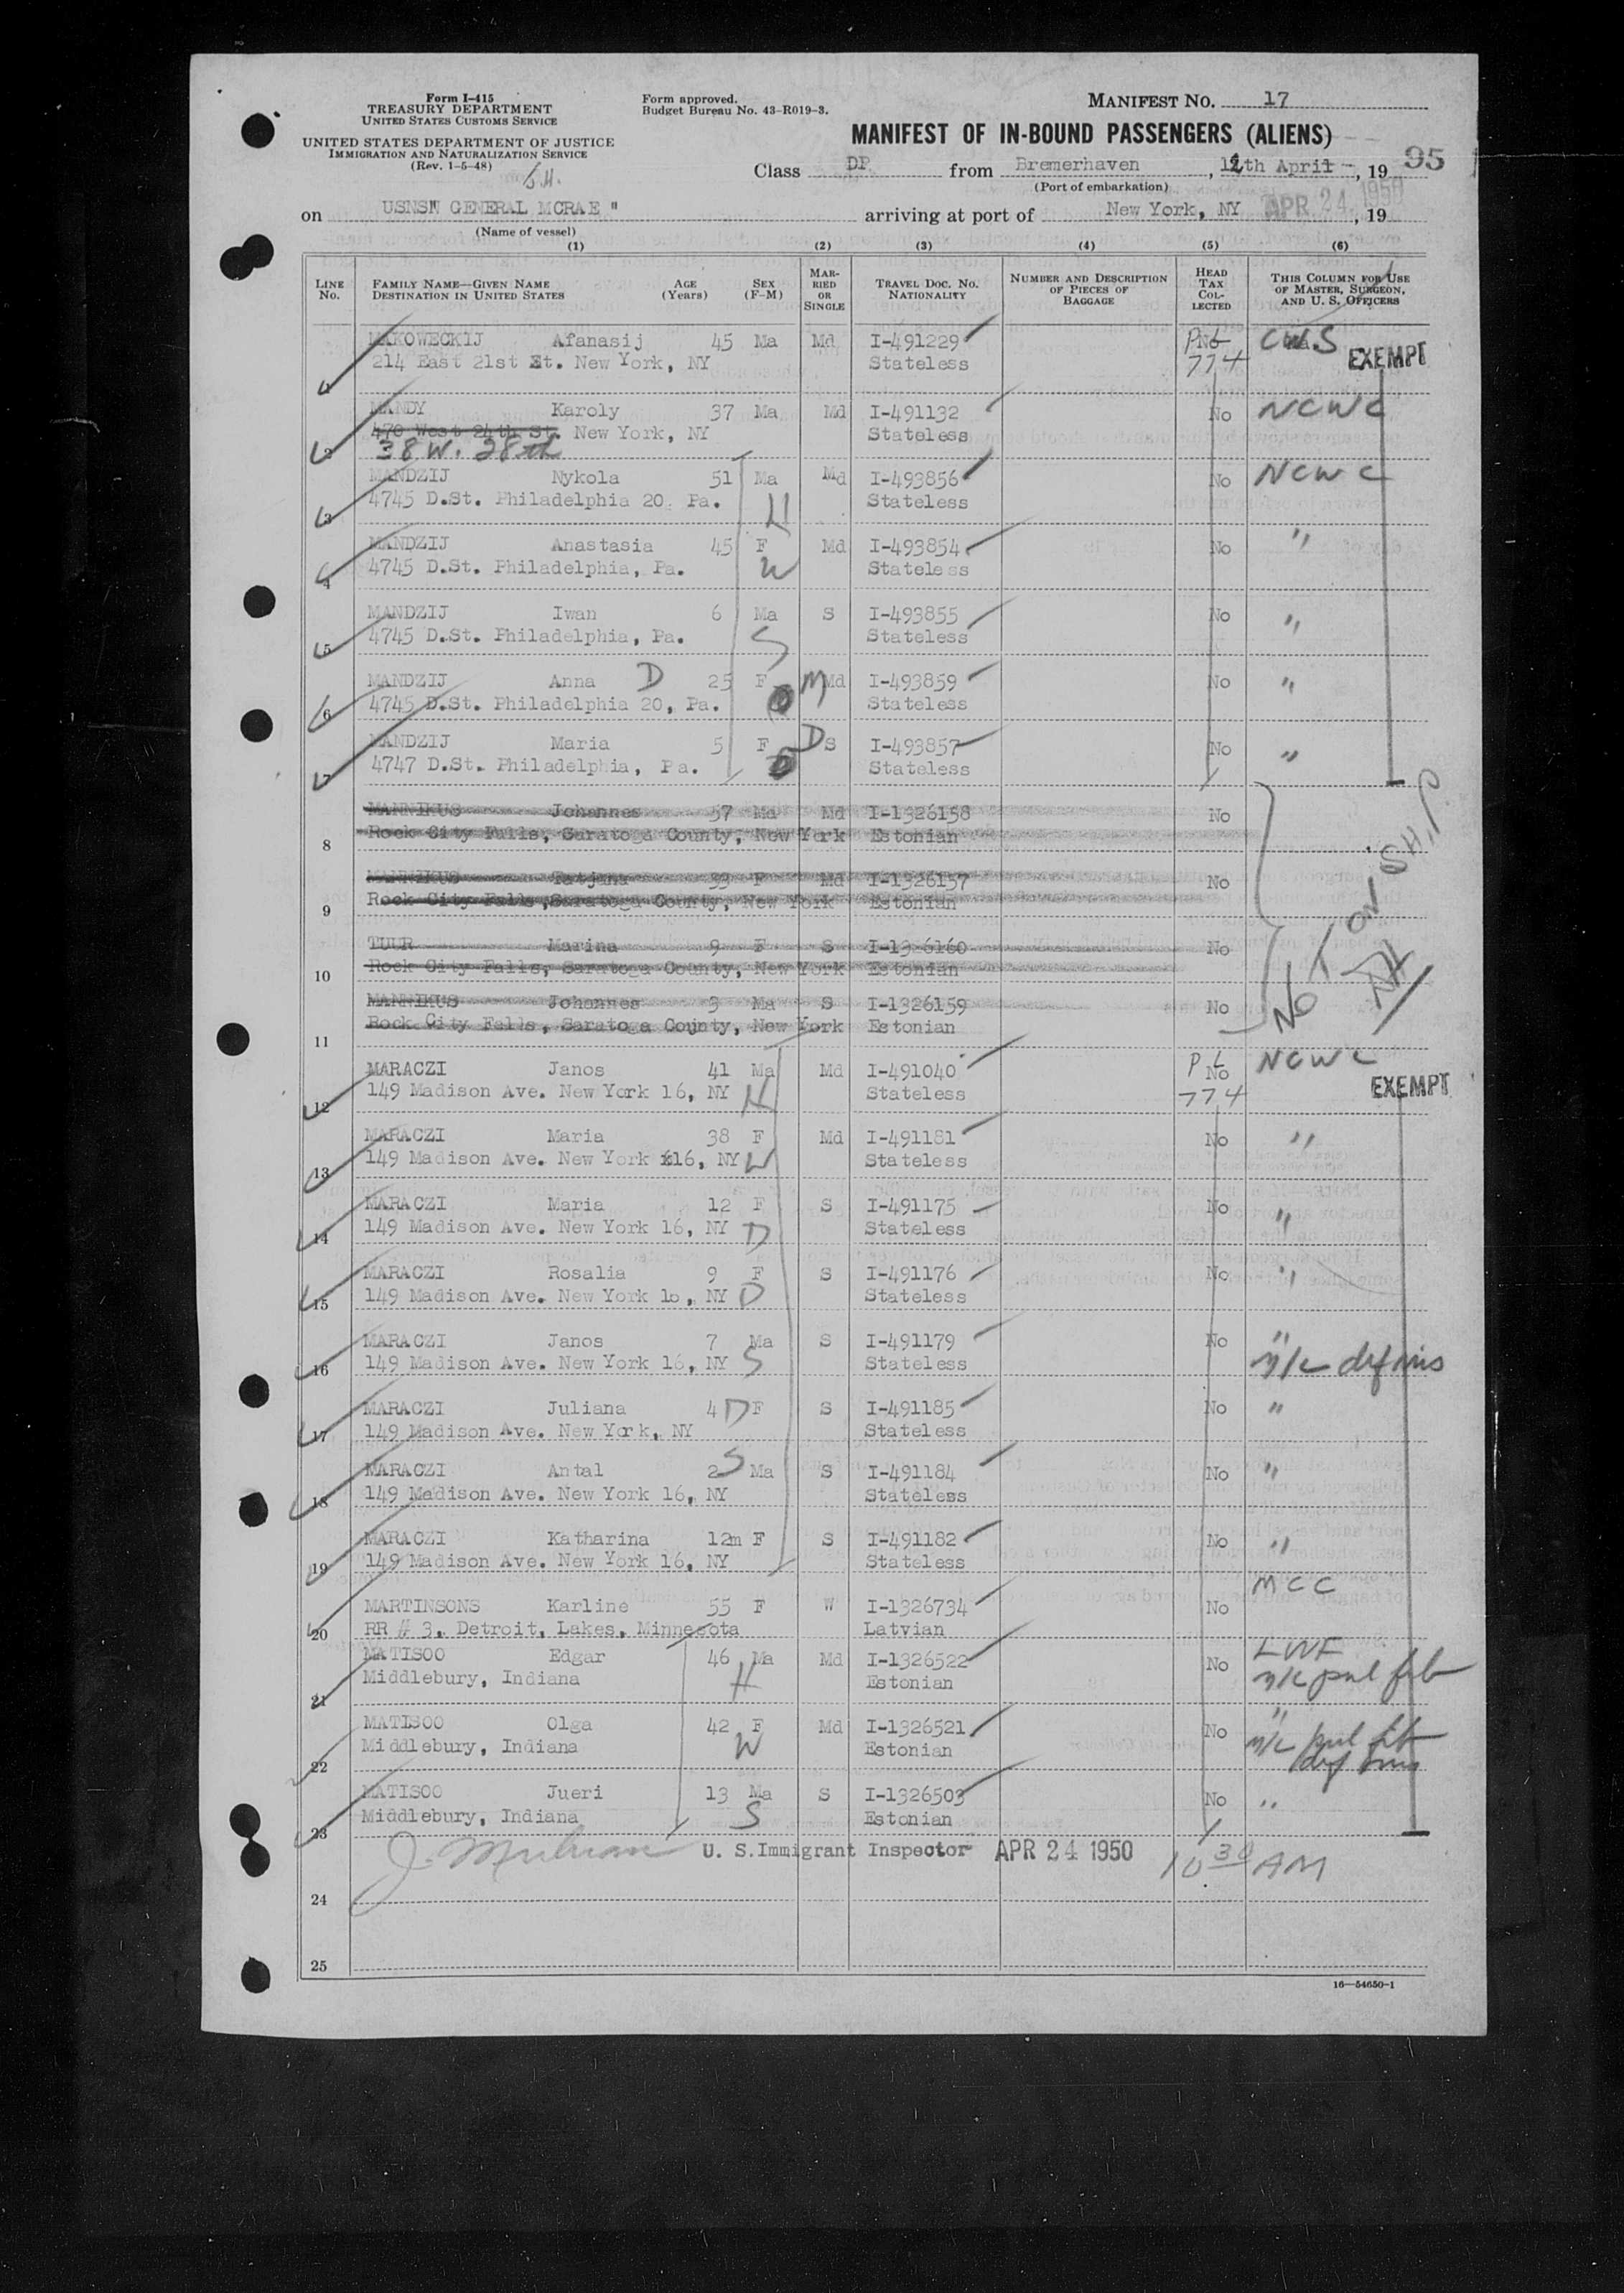 Form I-415
TREASURY DEPARTMENT
UNITED STATES CUSTOMS SERVICE
UNITED STATES DEPARTMENT OF JUSTICE
IMMIGRATION AND NATURALIZATION SERVICE
(Rev. 1-5-48)
Form approved.
Budget Bureau No. 43-R019-3.
MANIFEST NO. 17
MANIFEST OF IN-BOUND PASSENGERS (ALIENS)
95
Class DP from Bremerhaven, 12th April, 19
(Port of embarkation)
on USNS" GENERAL MCRAE " arriving at port of New York, NY APR 24 1950, 19
(Name of vessel)
(1) (2) (3) (4) (5) (6)
LINE No. FAMILY NAME—GIVEN NAME DESTINATION IN UNITED STATES AGE (Years) SEX (F-M) MARRIED OR SINGLE TRAVEL DOC. NO. NATIONALITY NUMBER AND DESCRIPTION OF PIECES OF BAGGAGE HEAD TAX COLLECTED THIS COLUMN FOR USE OF MASTER, SURGEON, AND U. S. OFFICERS
MAKOWECKIJ Afanasij 45 Ma Md I-491229 No CWS
214 East 21st St. New York, NY Stateless 774 EXEMPT
MANDY Karoly 37 Ma Md I-491132 No NCWC
470 West 24th St. New York, NY Stateless
2 38 W. 28th
MANDZIJ Nykola 51 Ma Md I-493856 No NCWC
4745 D.St. Philadelphia 20, Pa. Stateless
3 H
MANDZIJ Anastasia 45 F Md I-493854 No "
4745 D.St. Philadelphia, Pa. W Stateless
4
MANDZIJ Iwan 6 Ma S I-493855 No "
4745 D.St. Philadelphia, Pa. S Stateless
5
MANDZIJ Anna D 25 F M Md I-493859 No "
4745 D.St. Philadelphia 20, Pa. Stateless
6
MANDZIJ Maria 5 F D S I-493857 No "
4747 D.St. Philadelphia, Pa. Stateless
7
MANNIKUS Johannes 57 Ma Md I-1326158 No
Rock City Falls, Saratoga County, New York Estonian
8
MANNIKUS Tatjana 39 F Md I-1326157 No
Rock City Falls, Saratoga County, New York Estonian
9
TUUR Marina 9 F S I-1326160 No
Rock City Falls, Saratoga County, New York Estonian
10
MANNIKUS Johannes 3 Ma S I-1326159 No
Rock City Falls, Saratoga County, New York Estonian
11
NOT ON SHIP
MARACZI Janos 41 Ma Md I-491040 No NCWC
149 Madison Ave. New York 16, NY H Stateless 774 EXEMPT
12
MARACZI Maria 38 F Md I-491181 No "
149 Madison Ave. New York 16, NY W Stateless
13
MARACZI Maria 12 F S I-491175 No "
149 Madison Ave. New York 16, NY D Stateless
14
MARACZI Rosalia 9 F S I-491176 No "
149 Madison Ave. New York 16, NY D Stateless
15
MARACZI Janos 7 Ma S I-491179 No "
149 Madison Ave. New York 16, NY S Stateless
16
MARACZI Juliana 4 D F S I-491185 No "
149 Madison Ave. New York, NY Stateless
17
MARACZI Antal 2 S Ma S I-491184 No "
149 Madison Ave. New York 16, NY Stateless
18
MARACZI Katharina 12m F S I-491182 No "
149 Madison Ave. New York 16, NY Stateless
19
MARTINSONS Karline 55 F W I-1326734 No MCC
RR # 3, Detroit, Lakes, Minnesota Latvian
20
MATISOO Edgar 46 Ma Md I-1326522 No LWF
Middlebury, Indiana H Estonian
21
MATISOO Olga 42 F Md I-1326521 No "
Middlebury, Indiana W Estonian
22
MATISOO Jueri 13 Ma S I-1326503 No "
Middlebury, Indiana S Estonian
23
U. S. Immigrant Inspector APR 24 1950 10 30 AM
24
25
16—54650-1